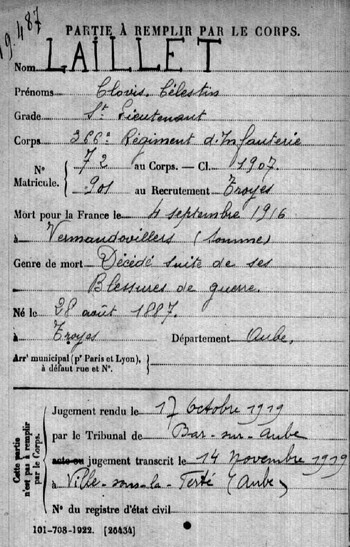 19.487
PARTIE À REMPLIR PAR LE CORPS.
Nom LAILLET
Prénoms Clovis. Célestin
Grade St Lieutenant
Corps 366e Régiment d'Infanterie
N° Matricule. 72 au Corps. — Cl. 1907.
901 au Recrutement Troyes
Mort pour la France le 4 septembre 1916
à Vermandovillers (Somme)
Genre de mort Décédé suite de ses
Blessures de guerre.
Né le 28 août 1887.
à Troyes Département Aube.
Arrt municipal (pr Paris et Lyon),
à défaut rue et N°.
Cette partie n'est pas à remplir par le Corps.
Jugement rendu le 17 Octobre 1919
par le Tribunal de Bar-sur-Aube
acte ou jugement transcrit le 14 Novembre 1919
à Ville-sous-la-Ferté (Aube)
N° du registre d'état civil
101-708-1922. [26434]